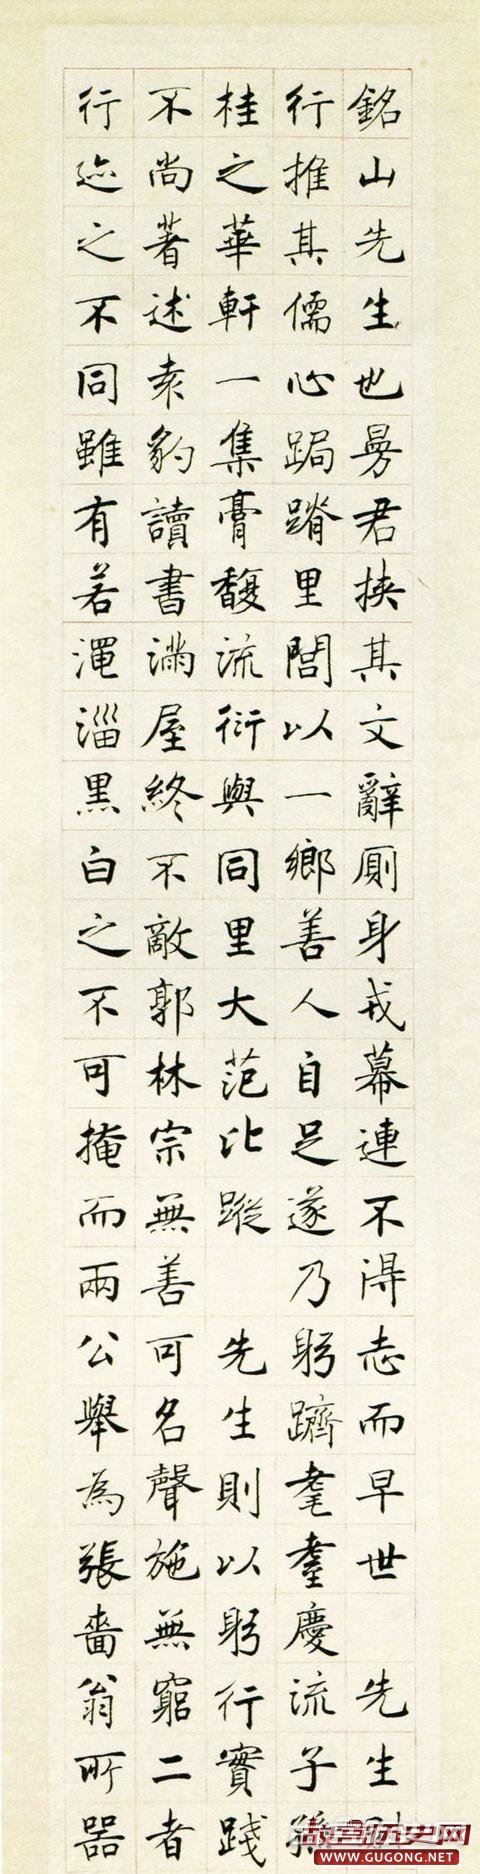 銘山先生也曼君挾其文辭廁身戎幕連不得志而早世 先生
行推其儒心跼蹐里閭以一鄉善人自足遂乃躬躋耄耋慶流子孫
桂之華軒一集膏馥流衍與同里大范比蹤 先生則以躬行實踐
不尚著述袁豹讀書滿屋終不敵郭林宗無善可名聲施無窮二者
行迹之不同雖有若澠淄黑白之不可掩而兩公舉為張嗇翁所器
故宫历史网
WWW.GUGONG.NET